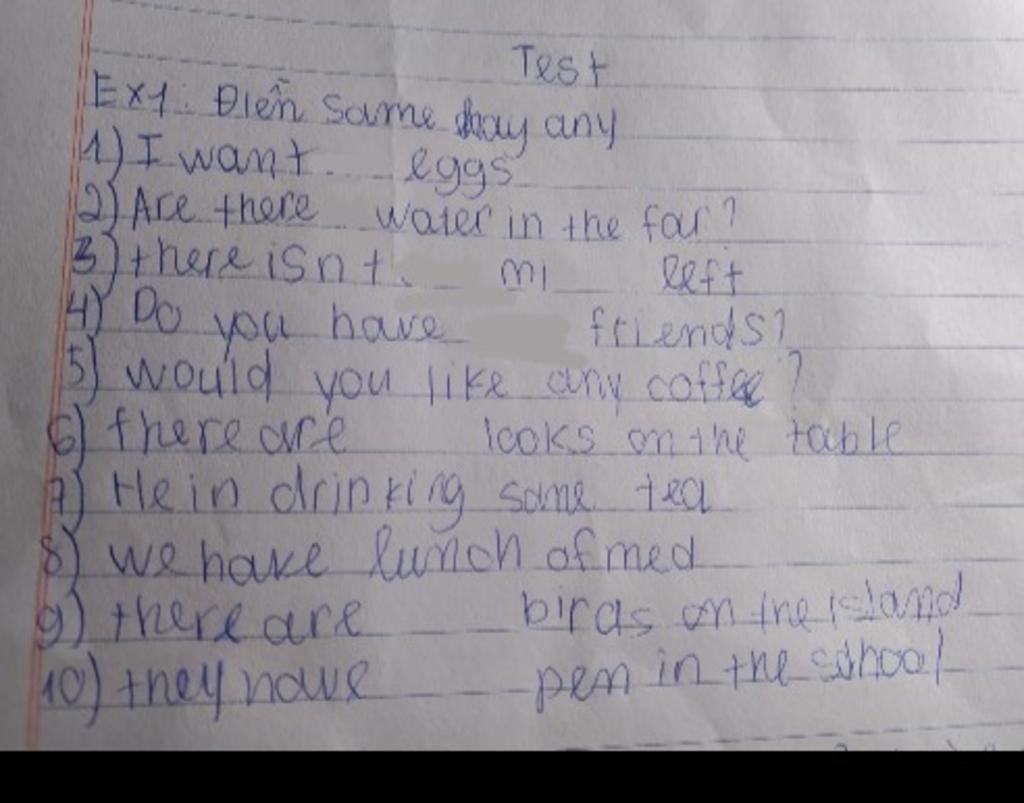 Test
Ex1: Điền same hay any
1) I want eggs
2) Are there water in the far?
3) there isnt. mi left
4) Do you have friends?
5) would you like any coffee?
6) there are looks on the table
7) He in drinking same tea
8) we have lunch of med
9) there are birds on the island
10) they have pen in the school